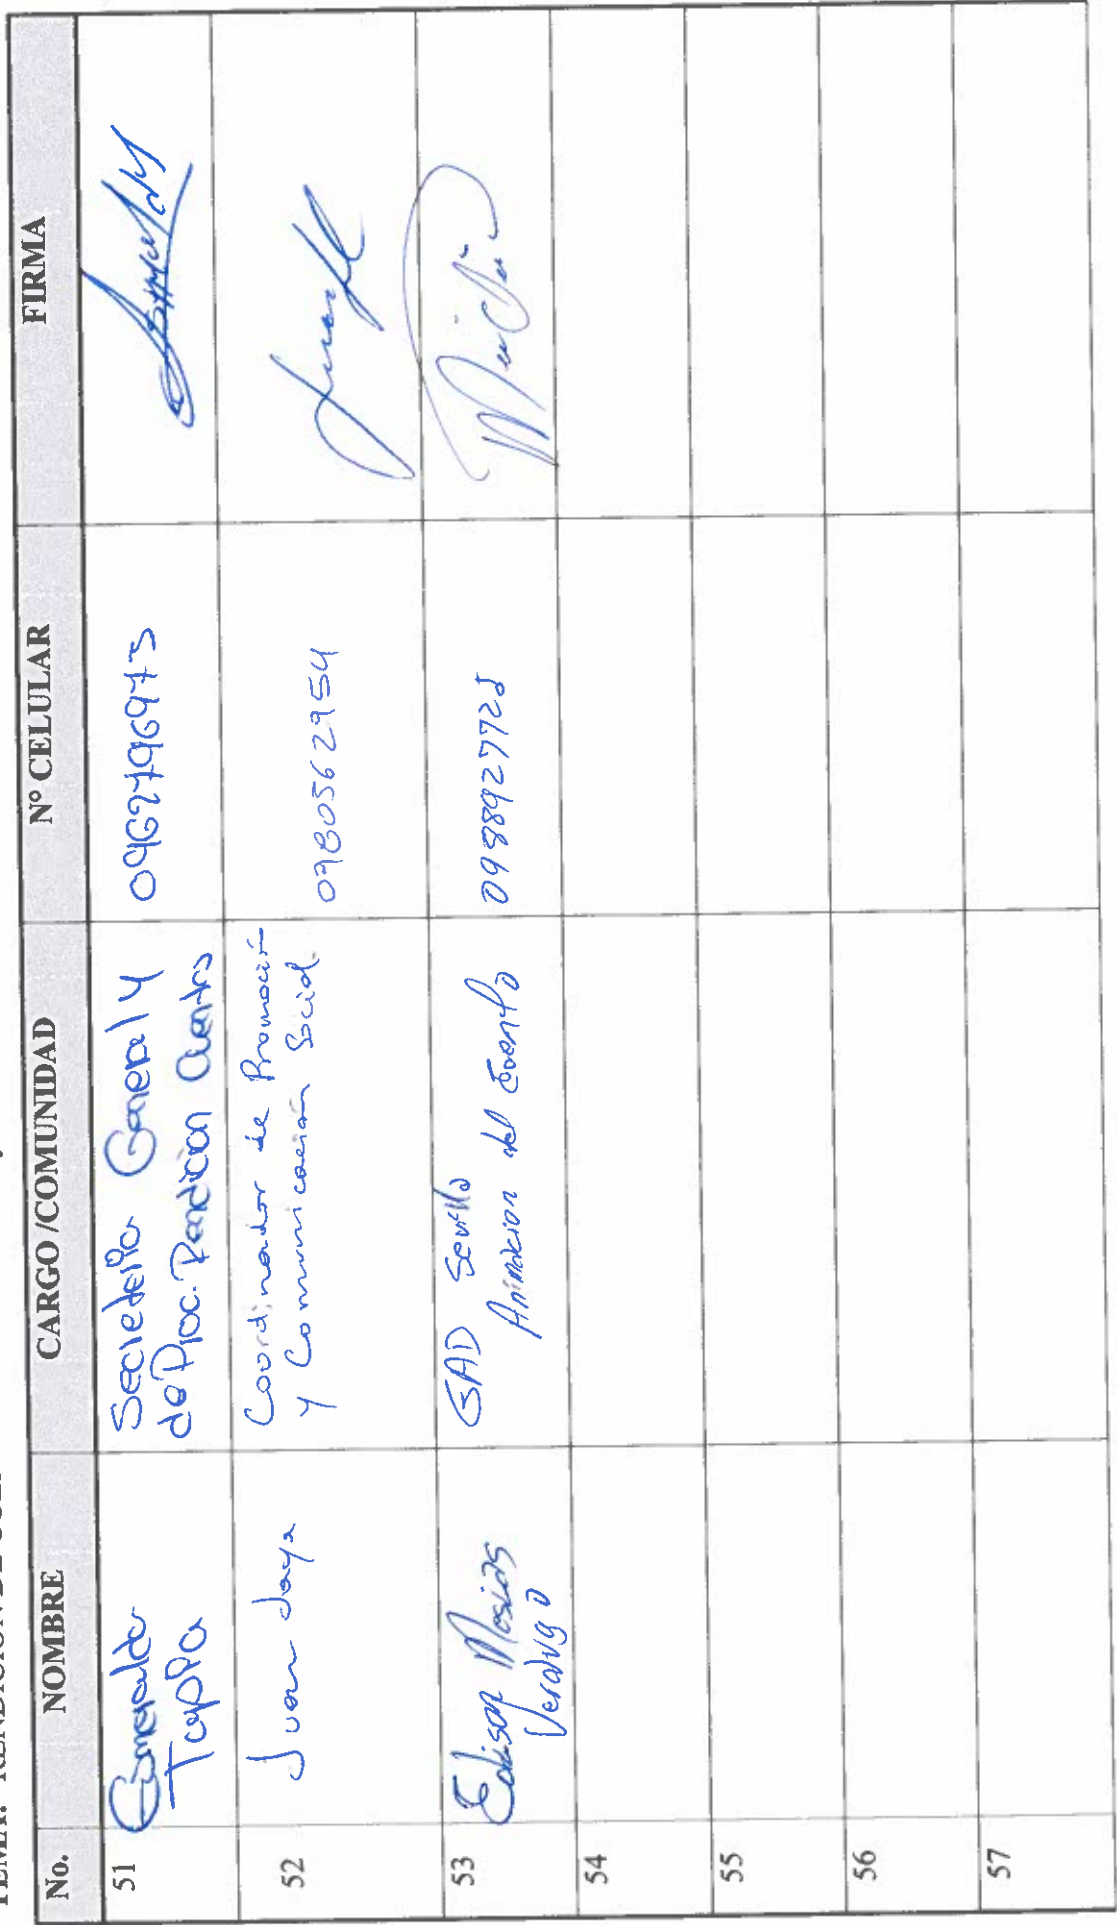 No. NOMBRE CARGO /COMUNIDAD N° CELULAR FIRMA
51 Esmeralda Tapia Secretaria General y de Proc. Rendicion Cuentas 0962796973
52 Juan Jaya Coordinador de Promoción y Comunicación Social. 0980562954
53 Edison Mesias Verdugo GAD Sevilla Animacion del Evento
54
55
56
57